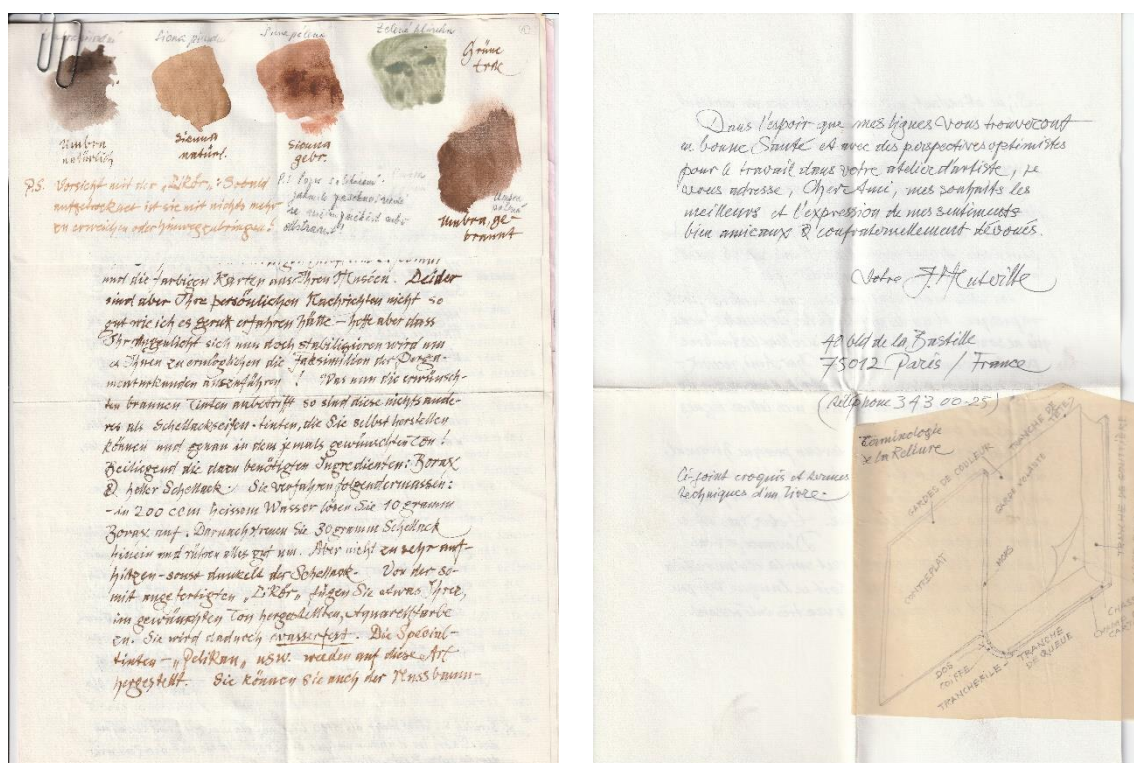 Siena pálená
Zelená hlinka
Grüne
Erde
Umbra
natürlich
Sienna
natürl.
Sienna
gebr.
Umbra, ge-
brannt
P.S. Vorsicht mit der „Likör“: Sobald
aufgetrocknet ist sie mit nichts mehr
zu erweichen oder hinwegzubringen!
und die farbigen Karten aus Ihren Museen. Leider
sind aber Ihre persönlichen Nachrichten nicht so
gut wie ich es gerne erfahren hätte – hoffe aber dass
Ihr Augenlicht sich nun doch stabiligieren wird um
es Ihnen zu ermöglichen die Faksimilien der Perga-
menturkunden auszuführen! Was nun die erwünsch-
ten braunen Tinten anbetrifft so sind diese nichts ande-
res als Schellackseifen-tinten, die Sie selbst herstellen
können und genau in dem jemals gewünschten Ton!
Beiliegend die dazu benötigten Ingredienten: Borax
& heller Schellack. Sie verfahren folgendermassen:
– in 200 ccm heissem Wasser lösen Sie 10 gramm
Borax auf. Darnach streuen Sie 30 gramm Schellack
hinein und rühren alles gut um. Aber nicht zu sehr auf-
hitzen – sonst dunkelt der Schellack. Von der so-
mit angefertigten „Likör“ fügen Sie etwas Ihrer,
im gewünschten Ton hergestellten, Aquarellfarbe
zu. Sie wird dadurch wasserfest. Die Spezial-
tinten – „Pelikan“ usw. werden auf diese Art
hergestellt. Sie können sie auch der Nussbaum-
Dans l'espoir que mes lignes vous trouveront
en bonne Santé et avec des perspectives optimistes
pour le travail dans votre atelier d'artiste, je
vous adresse, Cher Ami, mes souhaits les
meilleurs et l'expression de mes sentiments
bien amicaux & confraternellement dévoués.
Votre
40 bld de la Bastille
75012 Paris / France
(téléphone 343 00-25)
Ci-joint croquis et termes
techniques d'un livre.
Terminologie
de la Reliure
GARDES DE COULEUR
TRANCHE DE
TÊTE
GARDE VOLANTE
TRANCHE DE GOUTTIÈRE
CONTREPLAT
MORS
DOS
COIFFE
TRANCHEFILE
TRANCHE
DE QUEUE